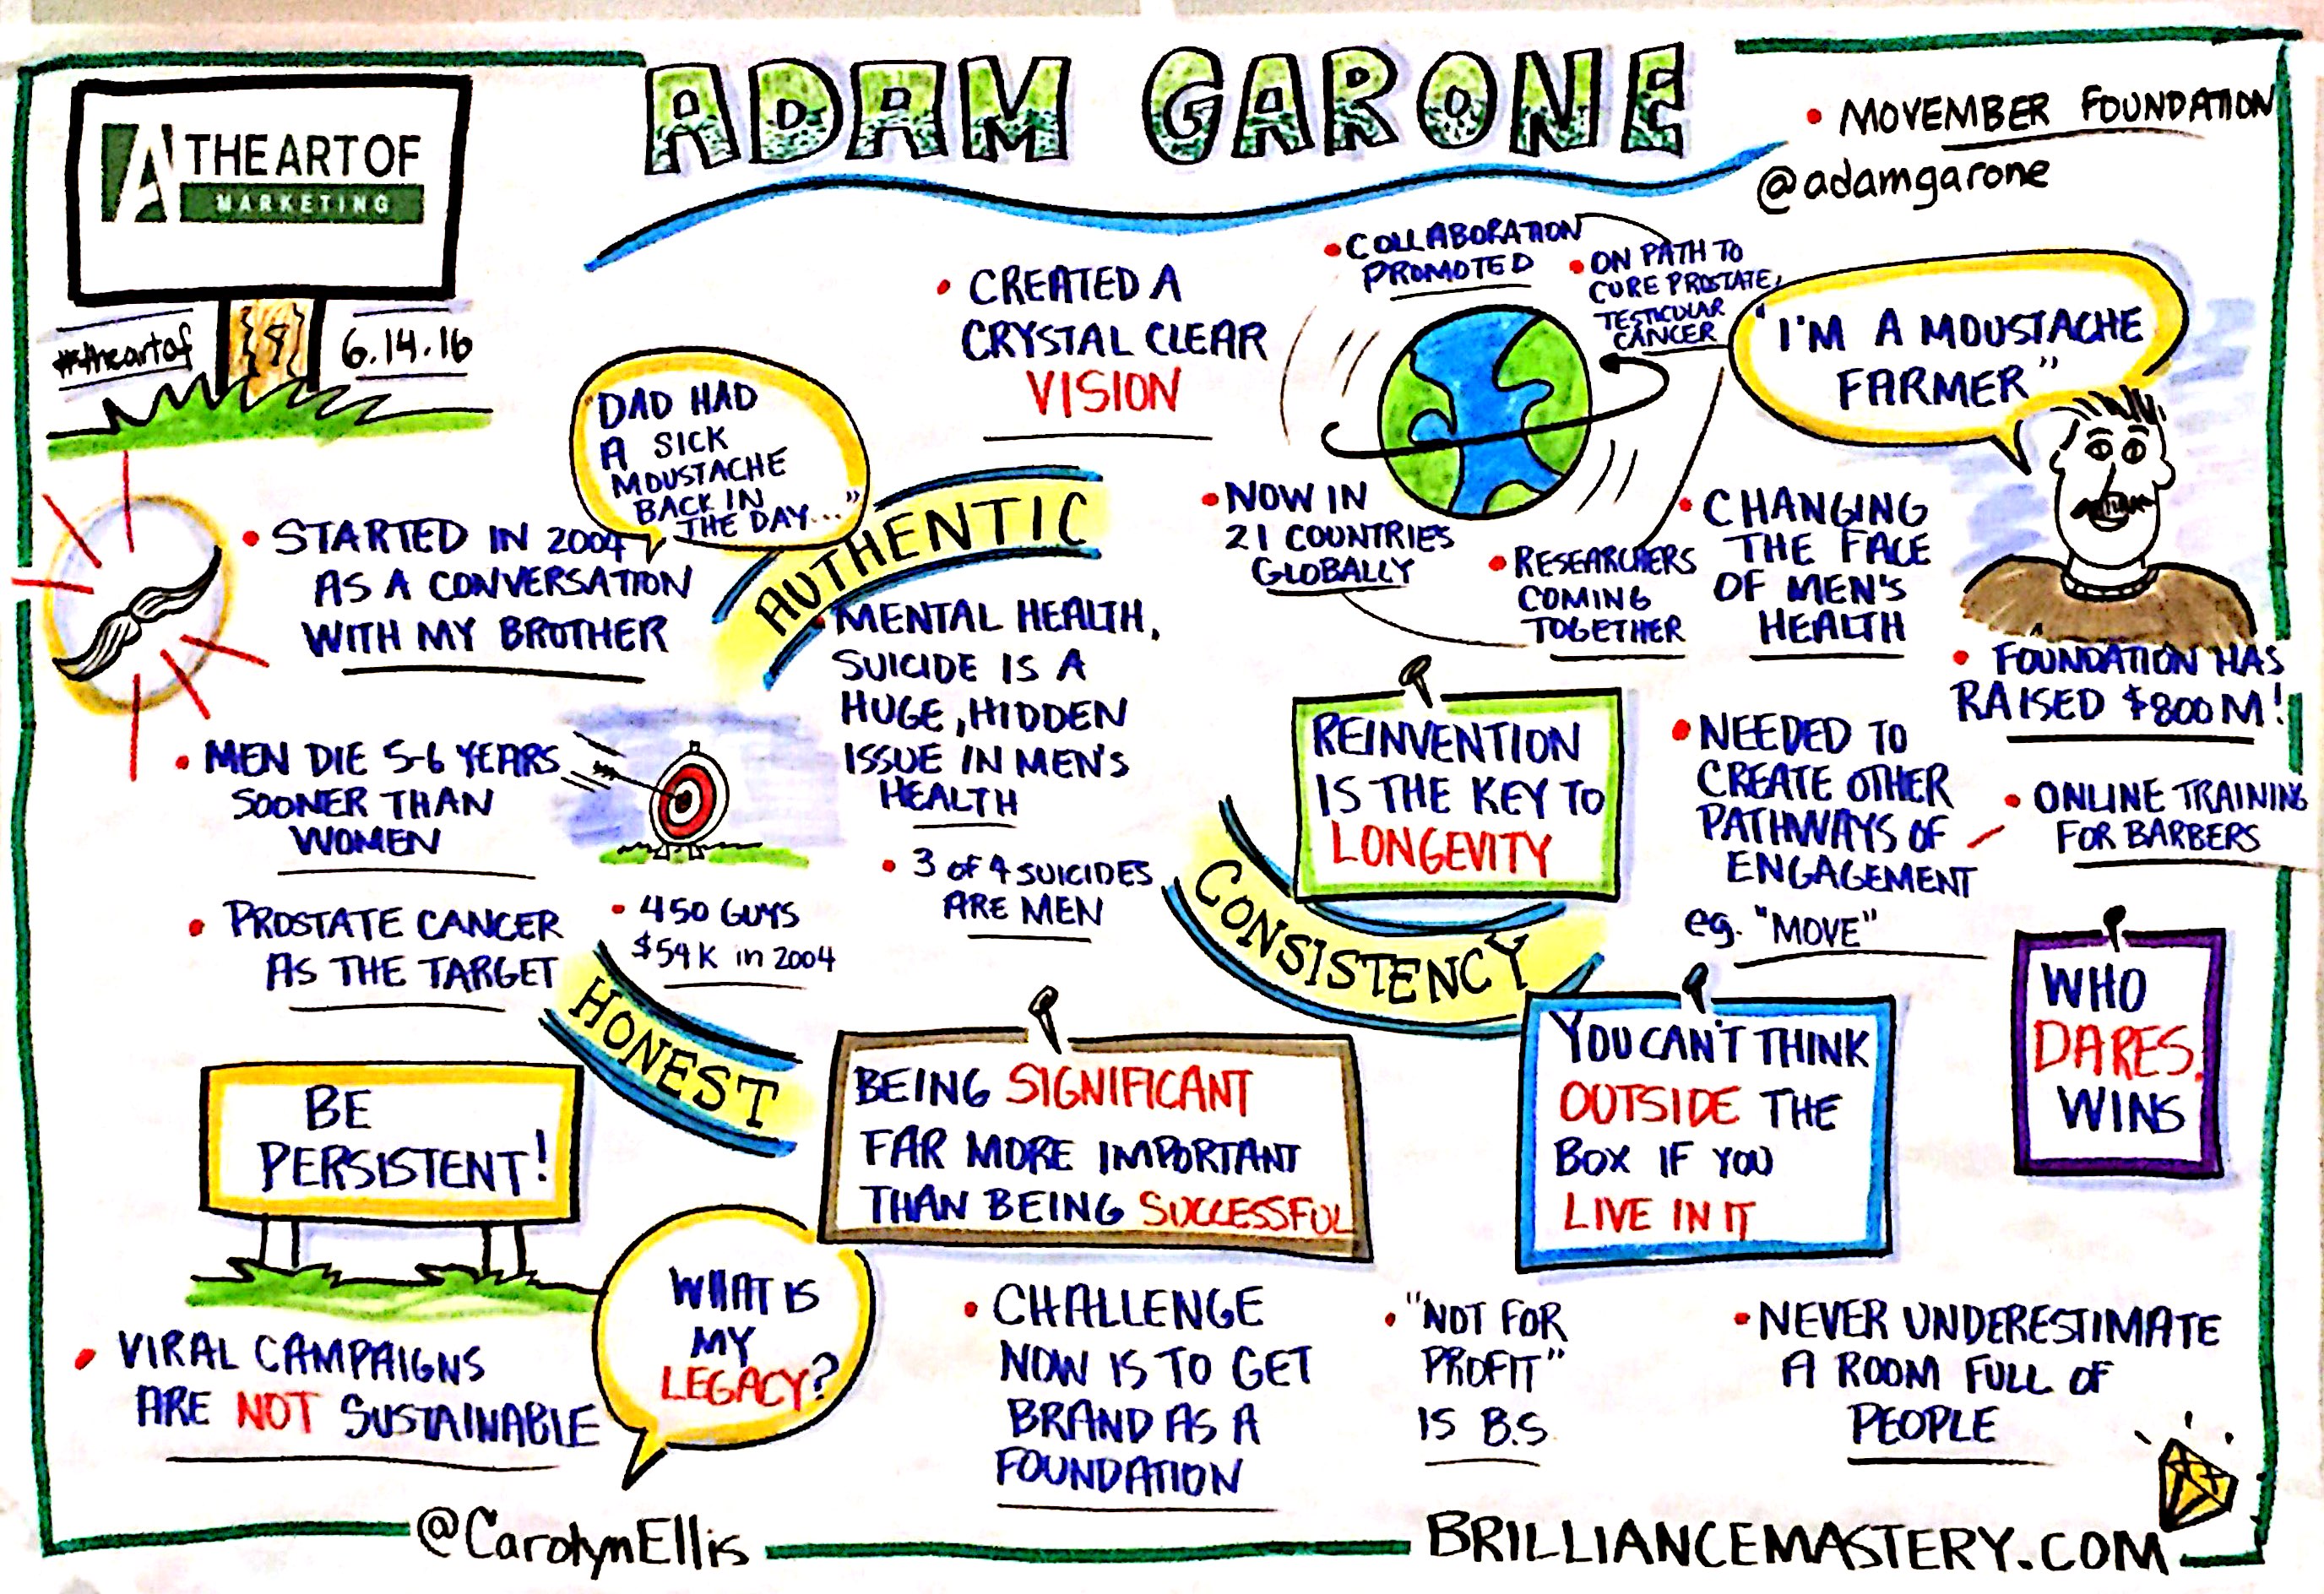 ADAM GARONE
• MOVEMBER FOUNDATION
@adamgarone
A THE ART OF
MARKETING
#theartof
6.14.16
"DAD HAD
A SICK
MOUSTACHE
BACK IN
THE DAY..."
• STARTED IN 2004
AS A CONVERSATION
WITH MY BROTHER
• MEN DIE 5-6 YEARS
SOONER THAN
WOMEN
• PROSTATE CANCER
AS THE TARGET
• 450 GUYS
$54K in 2004
AUTHENTIC
• CREATED A
CRYSTAL CLEAR
VISION
• MENTAL HEALTH,
SUICIDE IS A
HUGE, HIDDEN
ISSUE IN MEN'S
HEALTH
• 3 OF 4 SUICIDES
ARE MEN
HONEST
• COLLABORATION
PROMOTED
• ON PATH TO
CURE PROSTATE,
TESTICULAR
CANCER
• NOW IN
21 COUNTRIES
GLOBALLY
• RESEARCHERS
COMING
TOGETHER
"I'M A MOUSTACHE
FARMER"
• CHANGING
THE FACE
OF MEN'S
HEALTH
• FOUNDATION HAS
RAISED $800M!
REINVENTION
IS THE KEY TO
LONGEVITY
CONSISTENCY
• NEEDED TO
CREATE OTHER
PATHWAYS OF
ENGAGEMENT
eg. "MOVE"
• ONLINE TRAINING
FOR BARBERS
BE
PERSISTENT!
BEING SIGNIFICANT
FAR MORE IMPORTANT
THAN BEING SUCCESSFUL
YOU CAN'T THINK
OUTSIDE THE
BOX IF YOU
LIVE IN IT
WHO
DARES,
WINS
• VIRAL CAMPAIGNS
ARE NOT SUSTAINABLE
WHAT IS
MY
LEGACY?
• CHALLENGE
NOW IS TO GET
BRAND AS A
FOUNDATION
• "NOT FOR
PROFIT"
IS B.S.
• NEVER UNDERESTIMATE
A ROOM FULL OF
PEOPLE
@CarolynEllis
BRILLIANCEMASTERY.COM